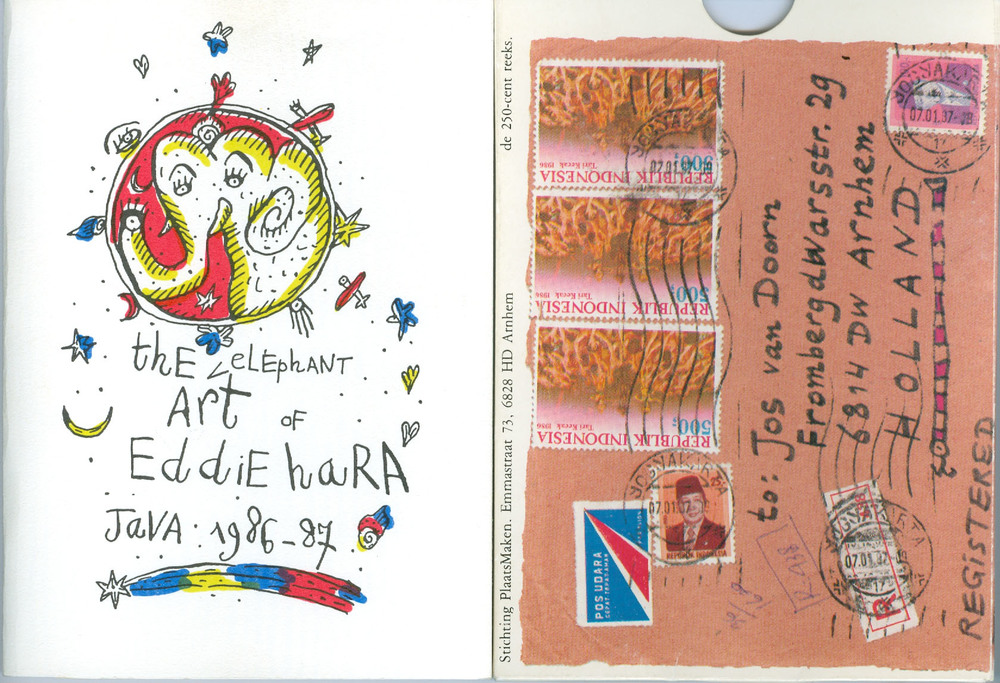 thE elEphANT
Art OF
EddiE haRA
JaVA : 1986-87
Stichting PlaatsMaken. Emmastraat 73, 6828 HD Arnhem
de 250-cent reeks.
500;
Tari Kecak 1986
REPUBLIK INDONESIA
500;
Tari Kecak 1986
REPUBLIK INDONESIA
500;
Tari Kecak 1986
REPUBLIK INDONESIA
07.01.87
07.01.87
REPUBLIK INDONESIA
POS UDARA
to: Jos van Doorn
Frombergdwarsstr. 29
6814 DW Arnhem
HOLLAND
REGISTERED
R
07.01.87
YOGYAKARTA
07.01.87-18